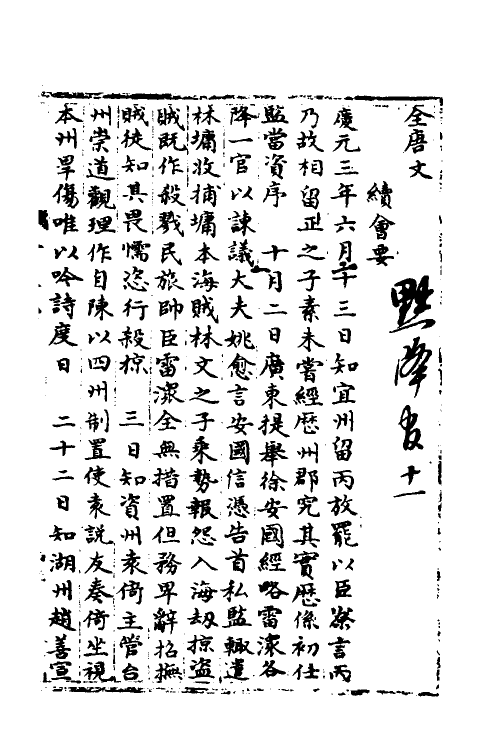 全唐文
續會要
黜降官十一
慶元三年六月二十三日知宜州留丙放罷以臣寮言丙
乃故相留正之子素未嘗經歷州郡究其實歷係初仕
監當資序　十月二日廣東提舉徐安國經略雷潨各
降一官以諫議大夫姚愈言安國信憑告首私監輙遣
林墉收捕墉本海賊林文之子乘勢報怨入海刼掠盜
賊旣作殺戮民旅帥臣雷潨全無措置但務卑辭招撫
賊徒知其畏懦恣行殺掠　三日知資州袁倚主管台
州崇道觀理作自陳以四州制置使袁説友奏倚坐視
本州旱傷唯以吟詩度日　二十二日知湖州趙善宣